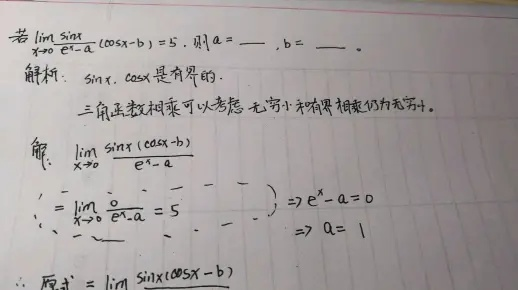 若 lim x→0 sinx/(eˣ-a) (cosx-b) = 5，则 a = ___ , b = ___ 。
解析: sinx, cosx 是有界的.
三角函数相乘可以考虑 无穷小和有界相乘仍为无穷小。
解: lim x→0 sinx(cosx-b)/(eˣ-a)
= lim x→0 0/(eˣ-a) = 5 ⇒ eˣ-a=0
⇒ a = 1
∴ 原式 = lim sinx(cosx-b)